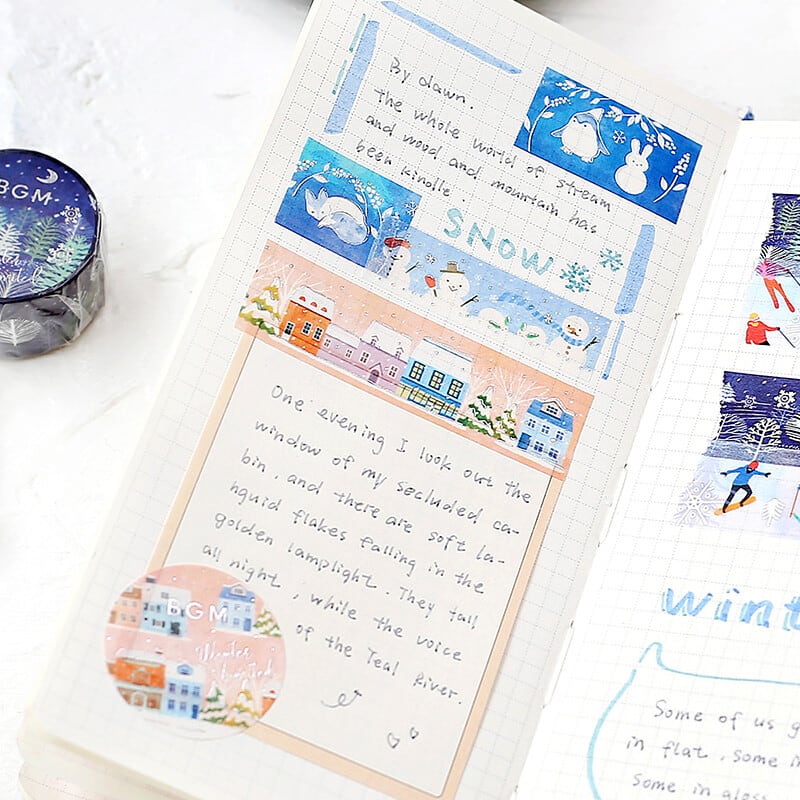 By dawn.
the whole world of stream
and wood and mountain has
been kindle.
SNOW
One evening I look out the
window of my secluded ca-
bin, and there are soft la-
nguid flakes falling in the
golden lamplight. They fall
all night, while the voice
of the Teal River.
BGM
Winter
limited
BGM
limited
wint
Some of us g
in flat, some in
some in gloss